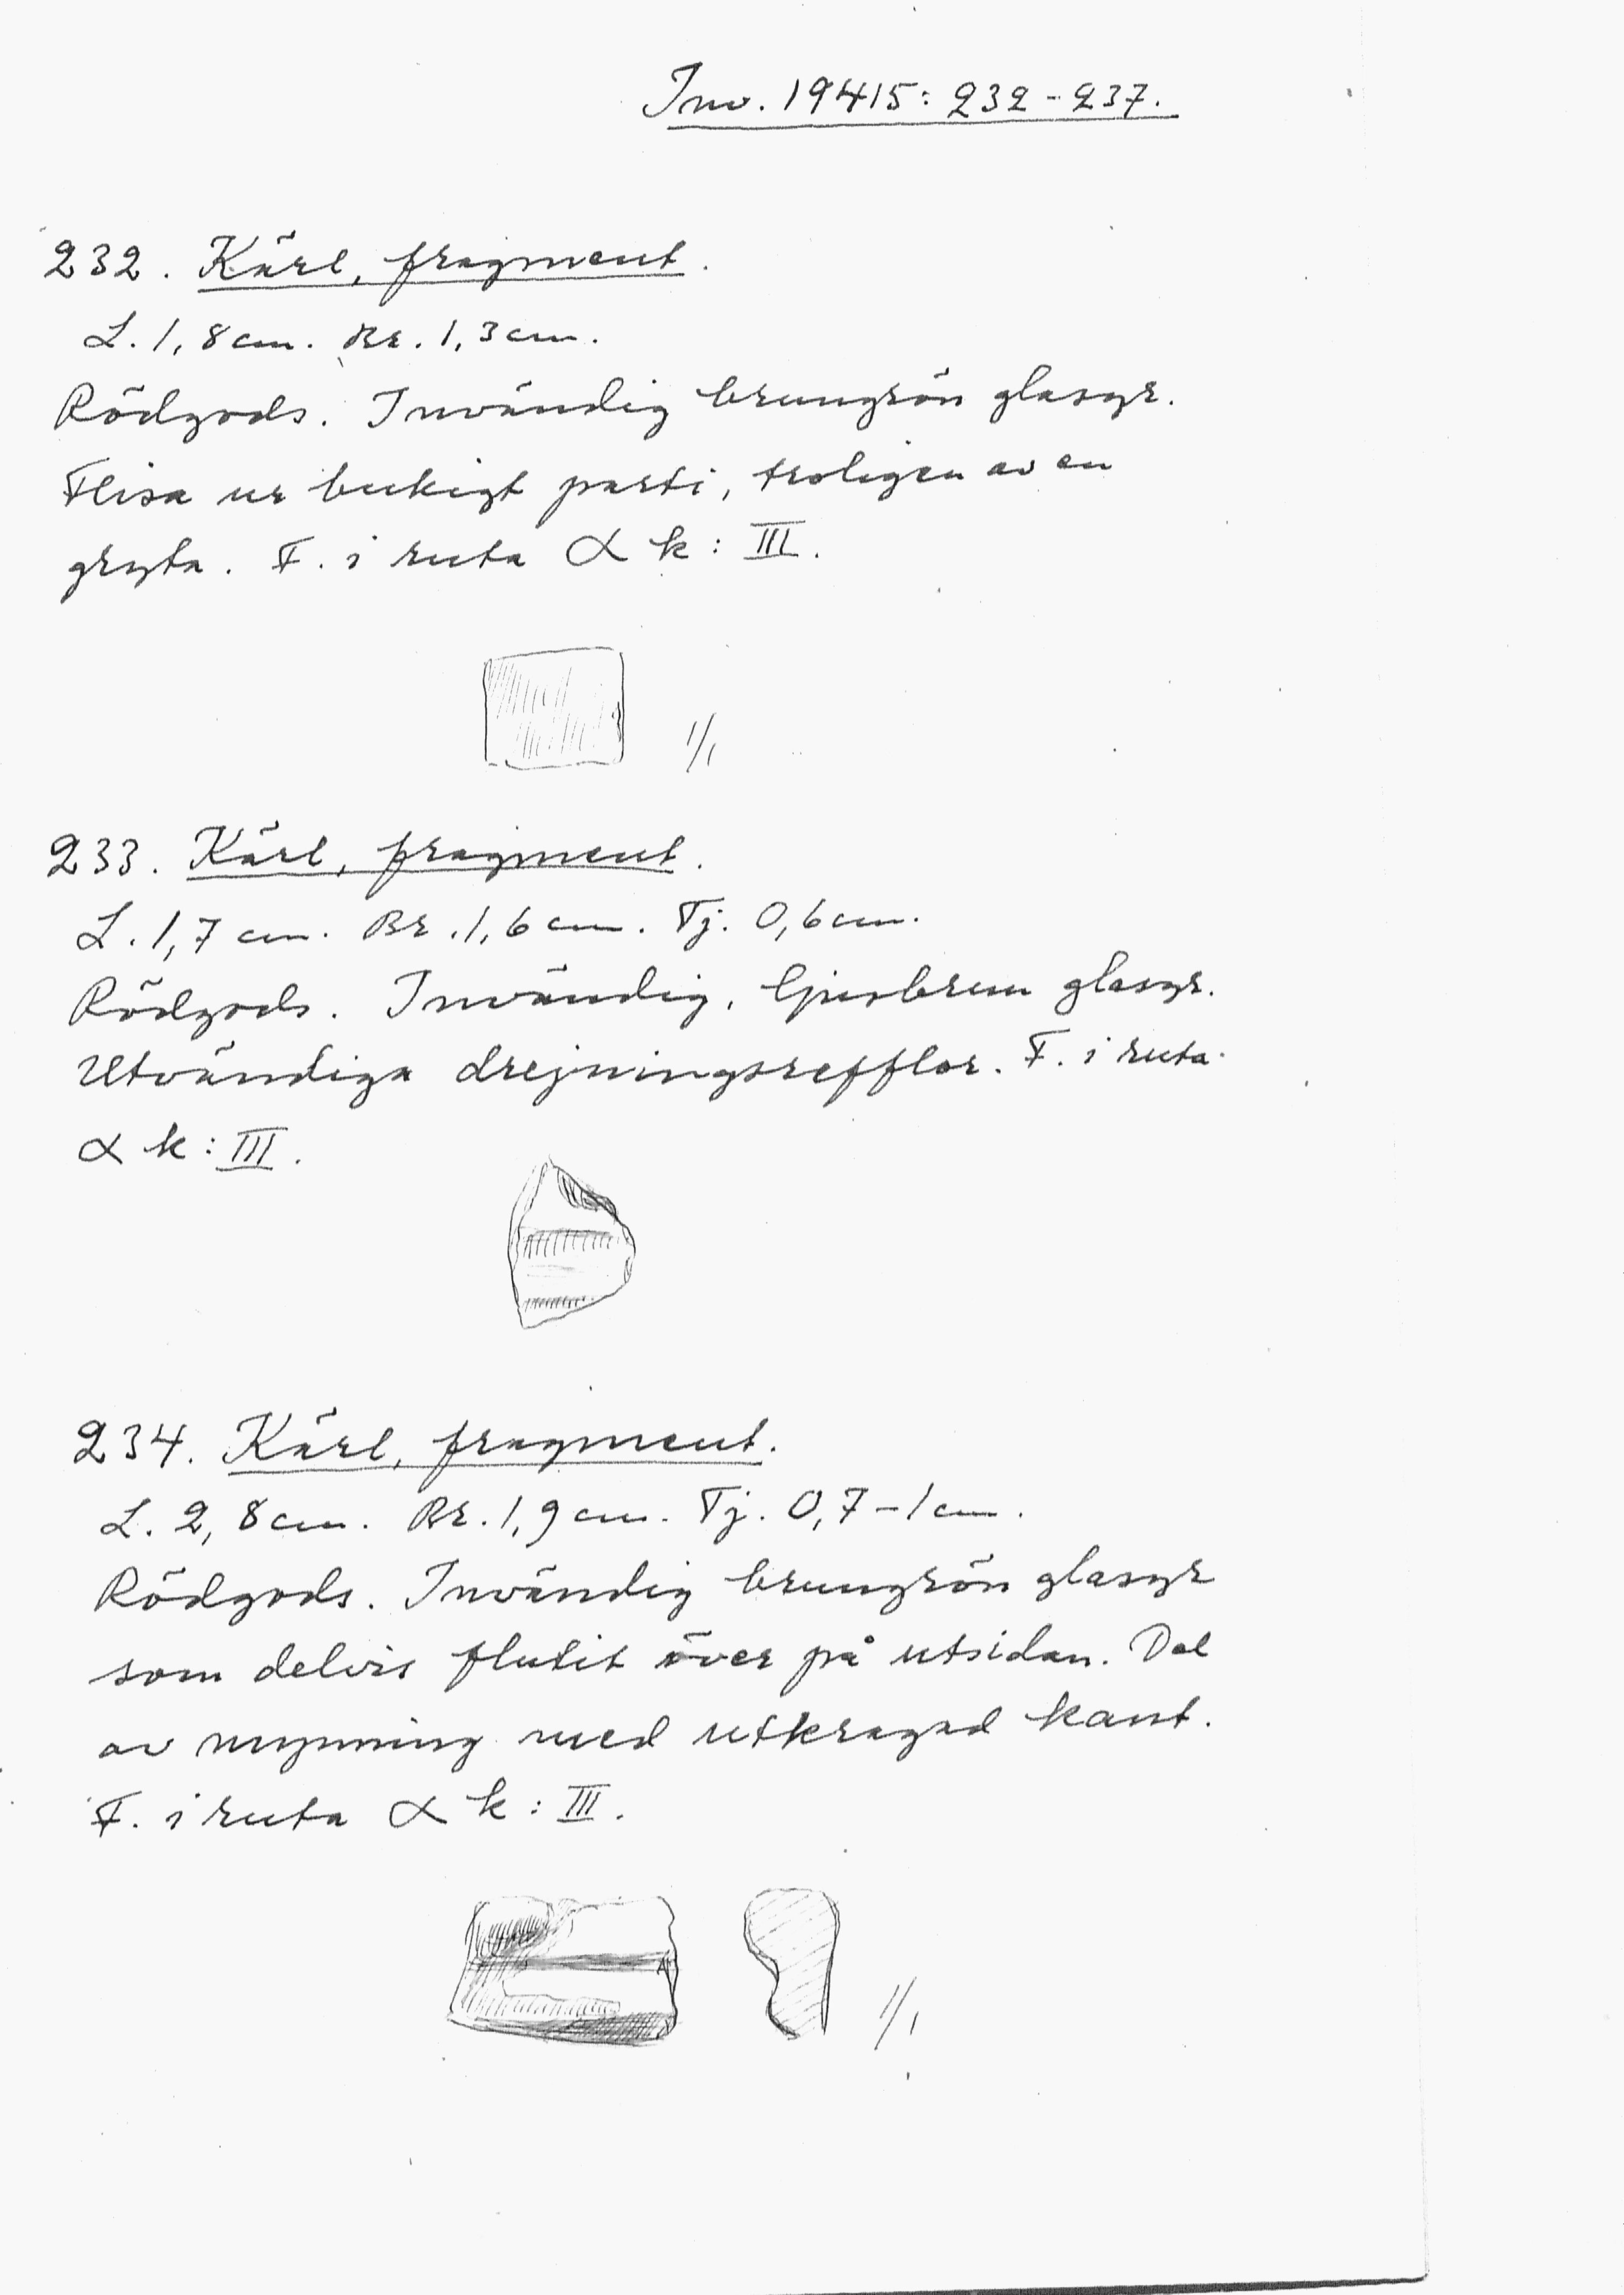 Inv. 19415: 232-237.
232. Kärl, fragment.
L. 1,8 cm. Br. 1,3 cm.
Rödgods. Invändig brungrön glasyr.
Flisa ur bukigt parti, troligen av en
gryta. F. i ruta α k: III.
1/1
233. Kärl, fragment.
L. 1,7 cm. Br. 1,6 cm. Tj. 0,6 cm.
Rödgods. Invändig, ljusbrun glasyr.
Utvändiga drejningsrefflor. F. i ruta
α k: III.
234. Kärl, fragment.
L. 2,8 cm. Br. 1,9 cm. Tj. 0,7-1 cm.
Rödgods. Invändig brungrön glasyr
som delvis flutit över på utsidan. Del
av mynning med utkragad kant.
F. i ruta α k: III.
1/1